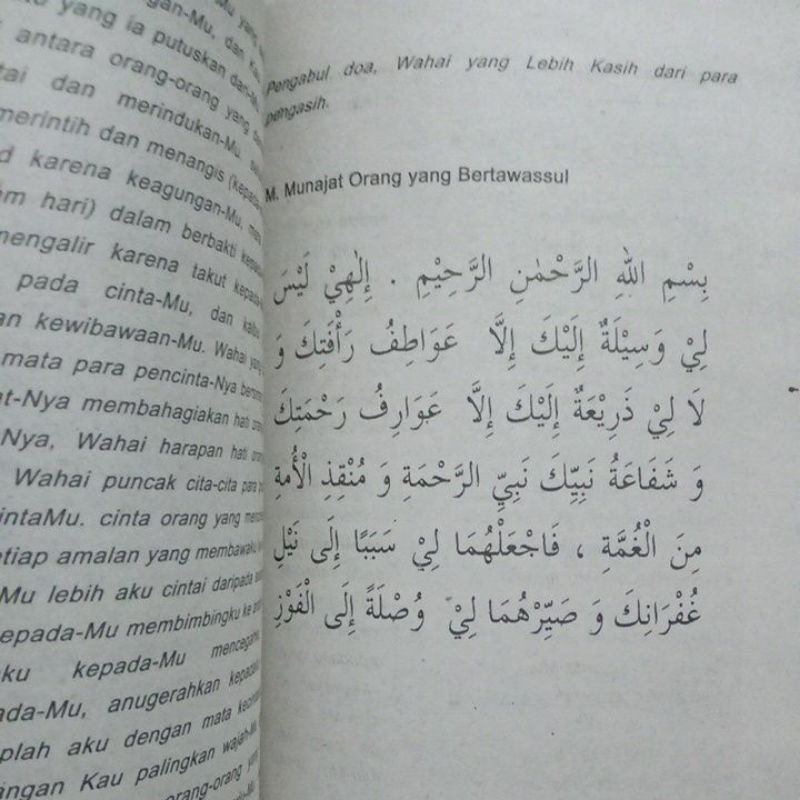 -Mu, dan
yang ia putuskan dari-Mu
antara orang-orang yang
dan merindukan-Mu.
merintih dan menangis (kepada
karena keagungan-Mu,
hari) dalam berbakti
mengalir karena takut
pada cinta-Mu, dan
kewibawaan-Mu. Wahai
mata para pencinta-Nya
-Nya membahagiakan hati
-Nya, Wahai harapan hati
Wahai puncak cita-cita para
cinta orang yang
etiap amalan yang membawaku
Mu lebih aku cintai daripada
kepada-Mu membimbingku ke
kepada-Mu
anugerahkan
aku dengan mata
Kau palingkan wajah-Mu
orang-orang yang
Pengabul doa, Wahai yang Lebih Kasih dari para
pengasih.
M. Munajat Orang yang Bertawassul
بِسْمِ اللهِ الرَّحْمٰنِ الرَّحِيْمِ . إِلٰهِيْ لَيْسَ
لِيْ وَسِيْلَةٌ إِلَيْكَ إِلَّا عَوَاطِفُ رَأْفَتِكَ وَ
لَا لِيْ ذَرِيْعَةٌ إِلَيْكَ إِلَّا عَوَارِفُ رَحْمَتِكَ
وَ شَفَاعَةُ نَبِيِّكَ نَبِيِّ الرَّحْمَةِ وَ مُنْقِذِ الْأُمةِ
مِنَ الْغُمَّةِ ، فَاجْعَلْهُمَا لِيْ سَبَبًا إِلَى نَيْلِ
غُفْرَانِكَ وَ صَيِّرْهُمَا لِيْ وُصْلَةً إِلَى الْفَوْزِ